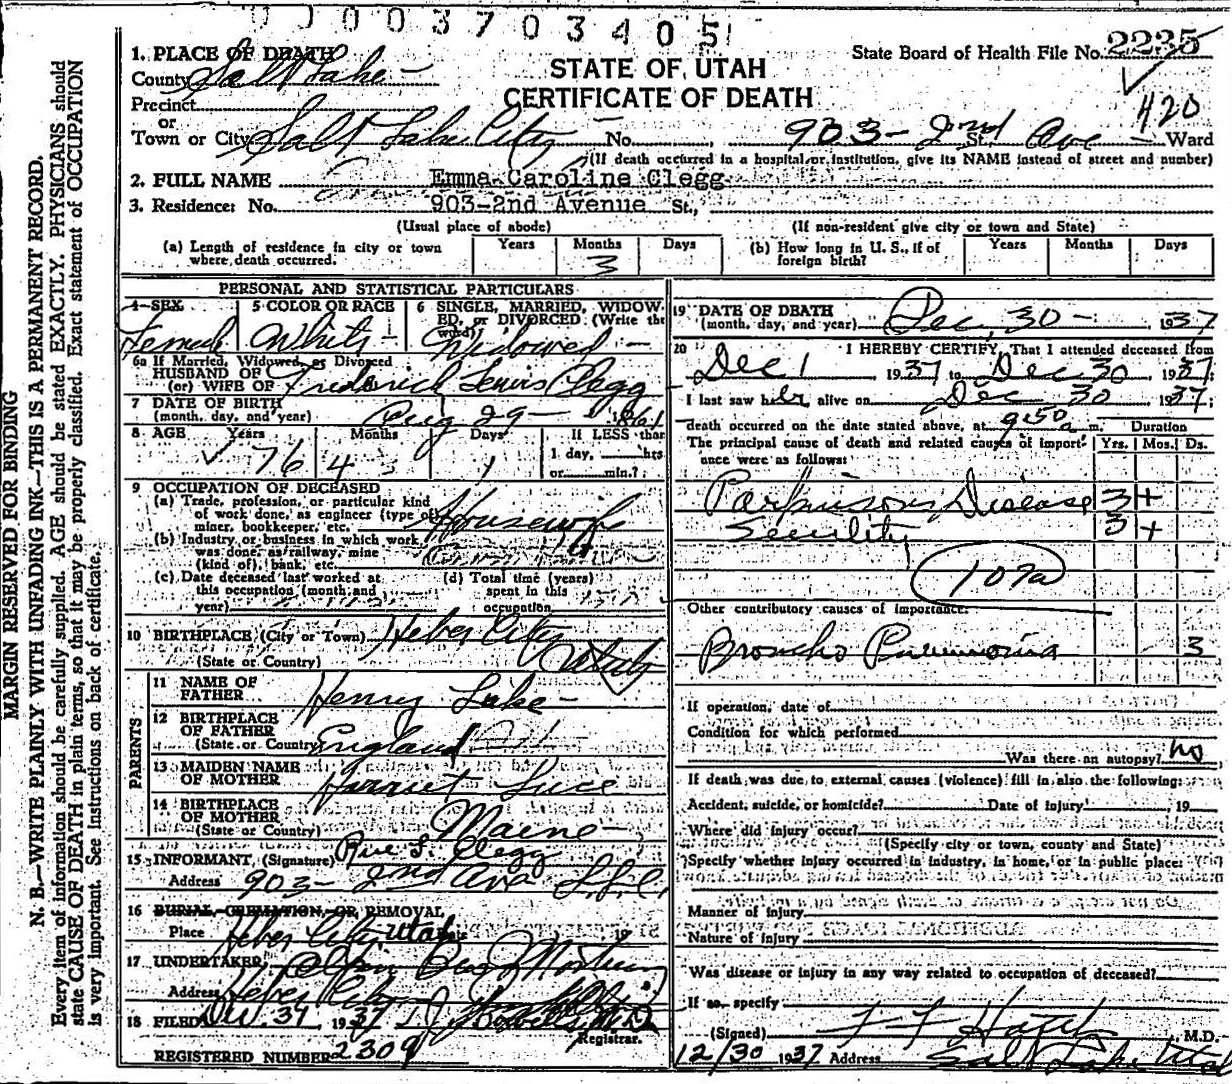 0003703405
State Board of Health File No. 2235
420
1. PLACE OF DEATH
STATE OF UTAH
CERTIFICATE OF DEATH
County Salt Lake
Precinct
or
Town or City Salt Lake City No. 903 - 2nd St. Ave Ward
(If death occurred in a hospital or institution, give its NAME instead of street and number)
2. FULL NAME Emma Caroline Clegg
3. Residence: No. 903-2nd Avenue St.,
(Usual place of abode) (If non-resident give city or town and State)
(a) Length of residence in city or town where death occurred. Years Months 3 Days
(b) How long in U. S., if of foreign birth? Years Months Days
PERSONAL AND STATISTICAL PARTICULARS
4 SEX Female
5 COLOR OR RACE White
6 SINGLE, MARRIED, WIDOWED, or DIVORCED (Write the word) Widowed
6a If Married, Widowed, or Divorced
HUSBAND OF
(or) WIFE OF Frederick Lewis Clegg
7 DATE OF BIRTH
(month, day, and year) Aug 29 - 1861
8 AGE Years 76 Months 4 Days 1
If LESS than
1 day, hrs
or min.?
9 OCCUPATION OF DECEASED
(a) Trade, profession, or particular kind
of work done, as engineer (type of) Housewife
miner, bookkeeper, etc.
(b) Industry or business in which work
was done, as railway, mine
(kind of), bank, etc.
(c) Date deceased last worked at
this occupation (month and
year)
(d) Total time (years)
spent in this
occupation
10 BIRTHPLACE (City or Town) Heber City
(State or Country) Utah
PARENTS
11 NAME OF
FATHER Henry Lake
12 BIRTHPLACE
OF FATHER
(State or Country) England
13 MAIDEN NAME
OF MOTHER Harriet Luce
14 BIRTHPLACE
OF MOTHER
(State or Country) Maine
15 INFORMANT (Signature) Rue L. Clegg
Address 903 - 2nd Ave S.L.C.
16 BURIAL, CREMATION, OR REMOVAL
Place Heber City, Utah 19
17 UNDERTAKER
Address Heber City
18 FILED 1937
Registrar.
REGISTERED NUMBER 2309
19 DATE OF DEATH
(month, day, and year) Dec 30 - 1937
20 I HEREBY CERTIFY, That I attended deceased from
Dec 1 1937 to Dec 30 1937
I last saw her alive on Dec 30 1937
death occurred on the date stated above, at 9:50 a m. Duration
The principal cause of death and related causes of importance were as follows: Yrs. Mos. Ds.
Parkinsons Disease 3 +
Senility 3 +
107a
Other contributory causes of importance:
Broncho Pneumonia 3
If operation, date of
Condition for which performed
Was there an autopsy? no
If death was due to external causes (violence) fill in also the following:
Accident, suicide, or homicide? Date of injury 19
Where did injury occur?
(Specify city or town, county and State)
Specify whether injury occurred in industry, in home, or in public place:
Manner of injury
Nature of injury
Was disease or injury in any way related to occupation of deceased?
If so, specify
(Signed) M.D.
12/30 1937 Address Salt Lake Utah
MARGIN RESERVED FOR BINDING
N. B.—WRITE PLAINLY WITH UNFADING INK—THIS IS A PERMANENT RECORD.
Every item of information should be carefully supplied. AGE should be stated EXACTLY. PHYSICIANS should
state CAUSE OF DEATH in plain terms, so that it may be properly classified. Exact statement of OCCUPATION
is very important. See instructions on back of certificate.